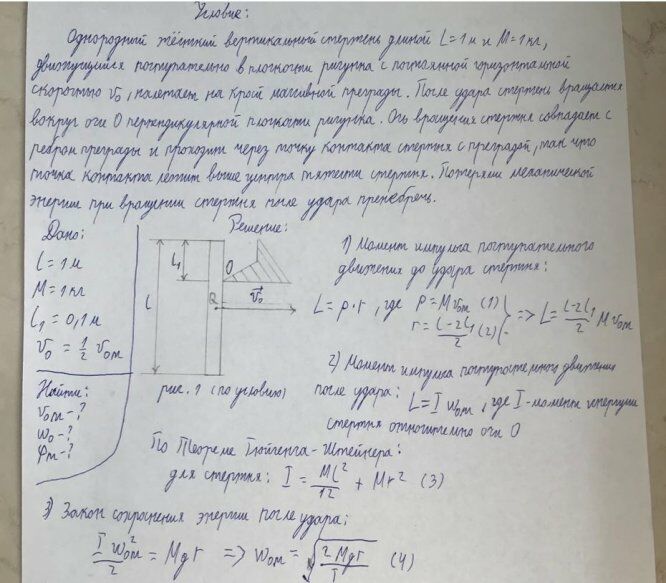 Условие:
Однородный жёсткий вертикальный стержень длиной L=1м и M=1кг,
движущийся поступательно в плоскости рисунка с постоянной горизонтальной
скоростью v₀, налетает на край массивной преграды. После удара стержень вращается
вокруг оси О перпендикулярной плоскости рисунка. Ось вращения стержня совпадает с
ребром преграды и проходит через точку контакта стержня с преградой, так что
точка контакта лежит выше центра тяжести стержня. Потерями механической
энергии при вращении стержня после удара пренебречь.
Дано:
L = 1 м
M = 1 кг
l₁ = 0,1 м
v₀ = 1/2 v₀ₘ
Найти:
v₀ₘ - ?
ω₀ - ?
φₘ - ?
Решение:
L₁
O
L
v⃗₀
рис. 1 (по условию)
1) Момент импульса поступательного
движения до удара стержня:
L = p·r, где p = M v₀ₘ (1)
r = (L-2l₁)/2 (2) } => L = (L-2l₁)/2 M v₀ₘ
2) Момент импульса поступательного движения
после удара: L = I ω₀ₘ, где I - момент инерции
стержня относительно оси О
По Теореме Гюйгенса-Штейнера:
для стержня: I = ML²/12 + Mr² (3)
3) Закон сохранения энергии после удара:
I ω₀ₘ²/2 = Mgr => ω₀ₘ = √(2Mgr/I) (4)